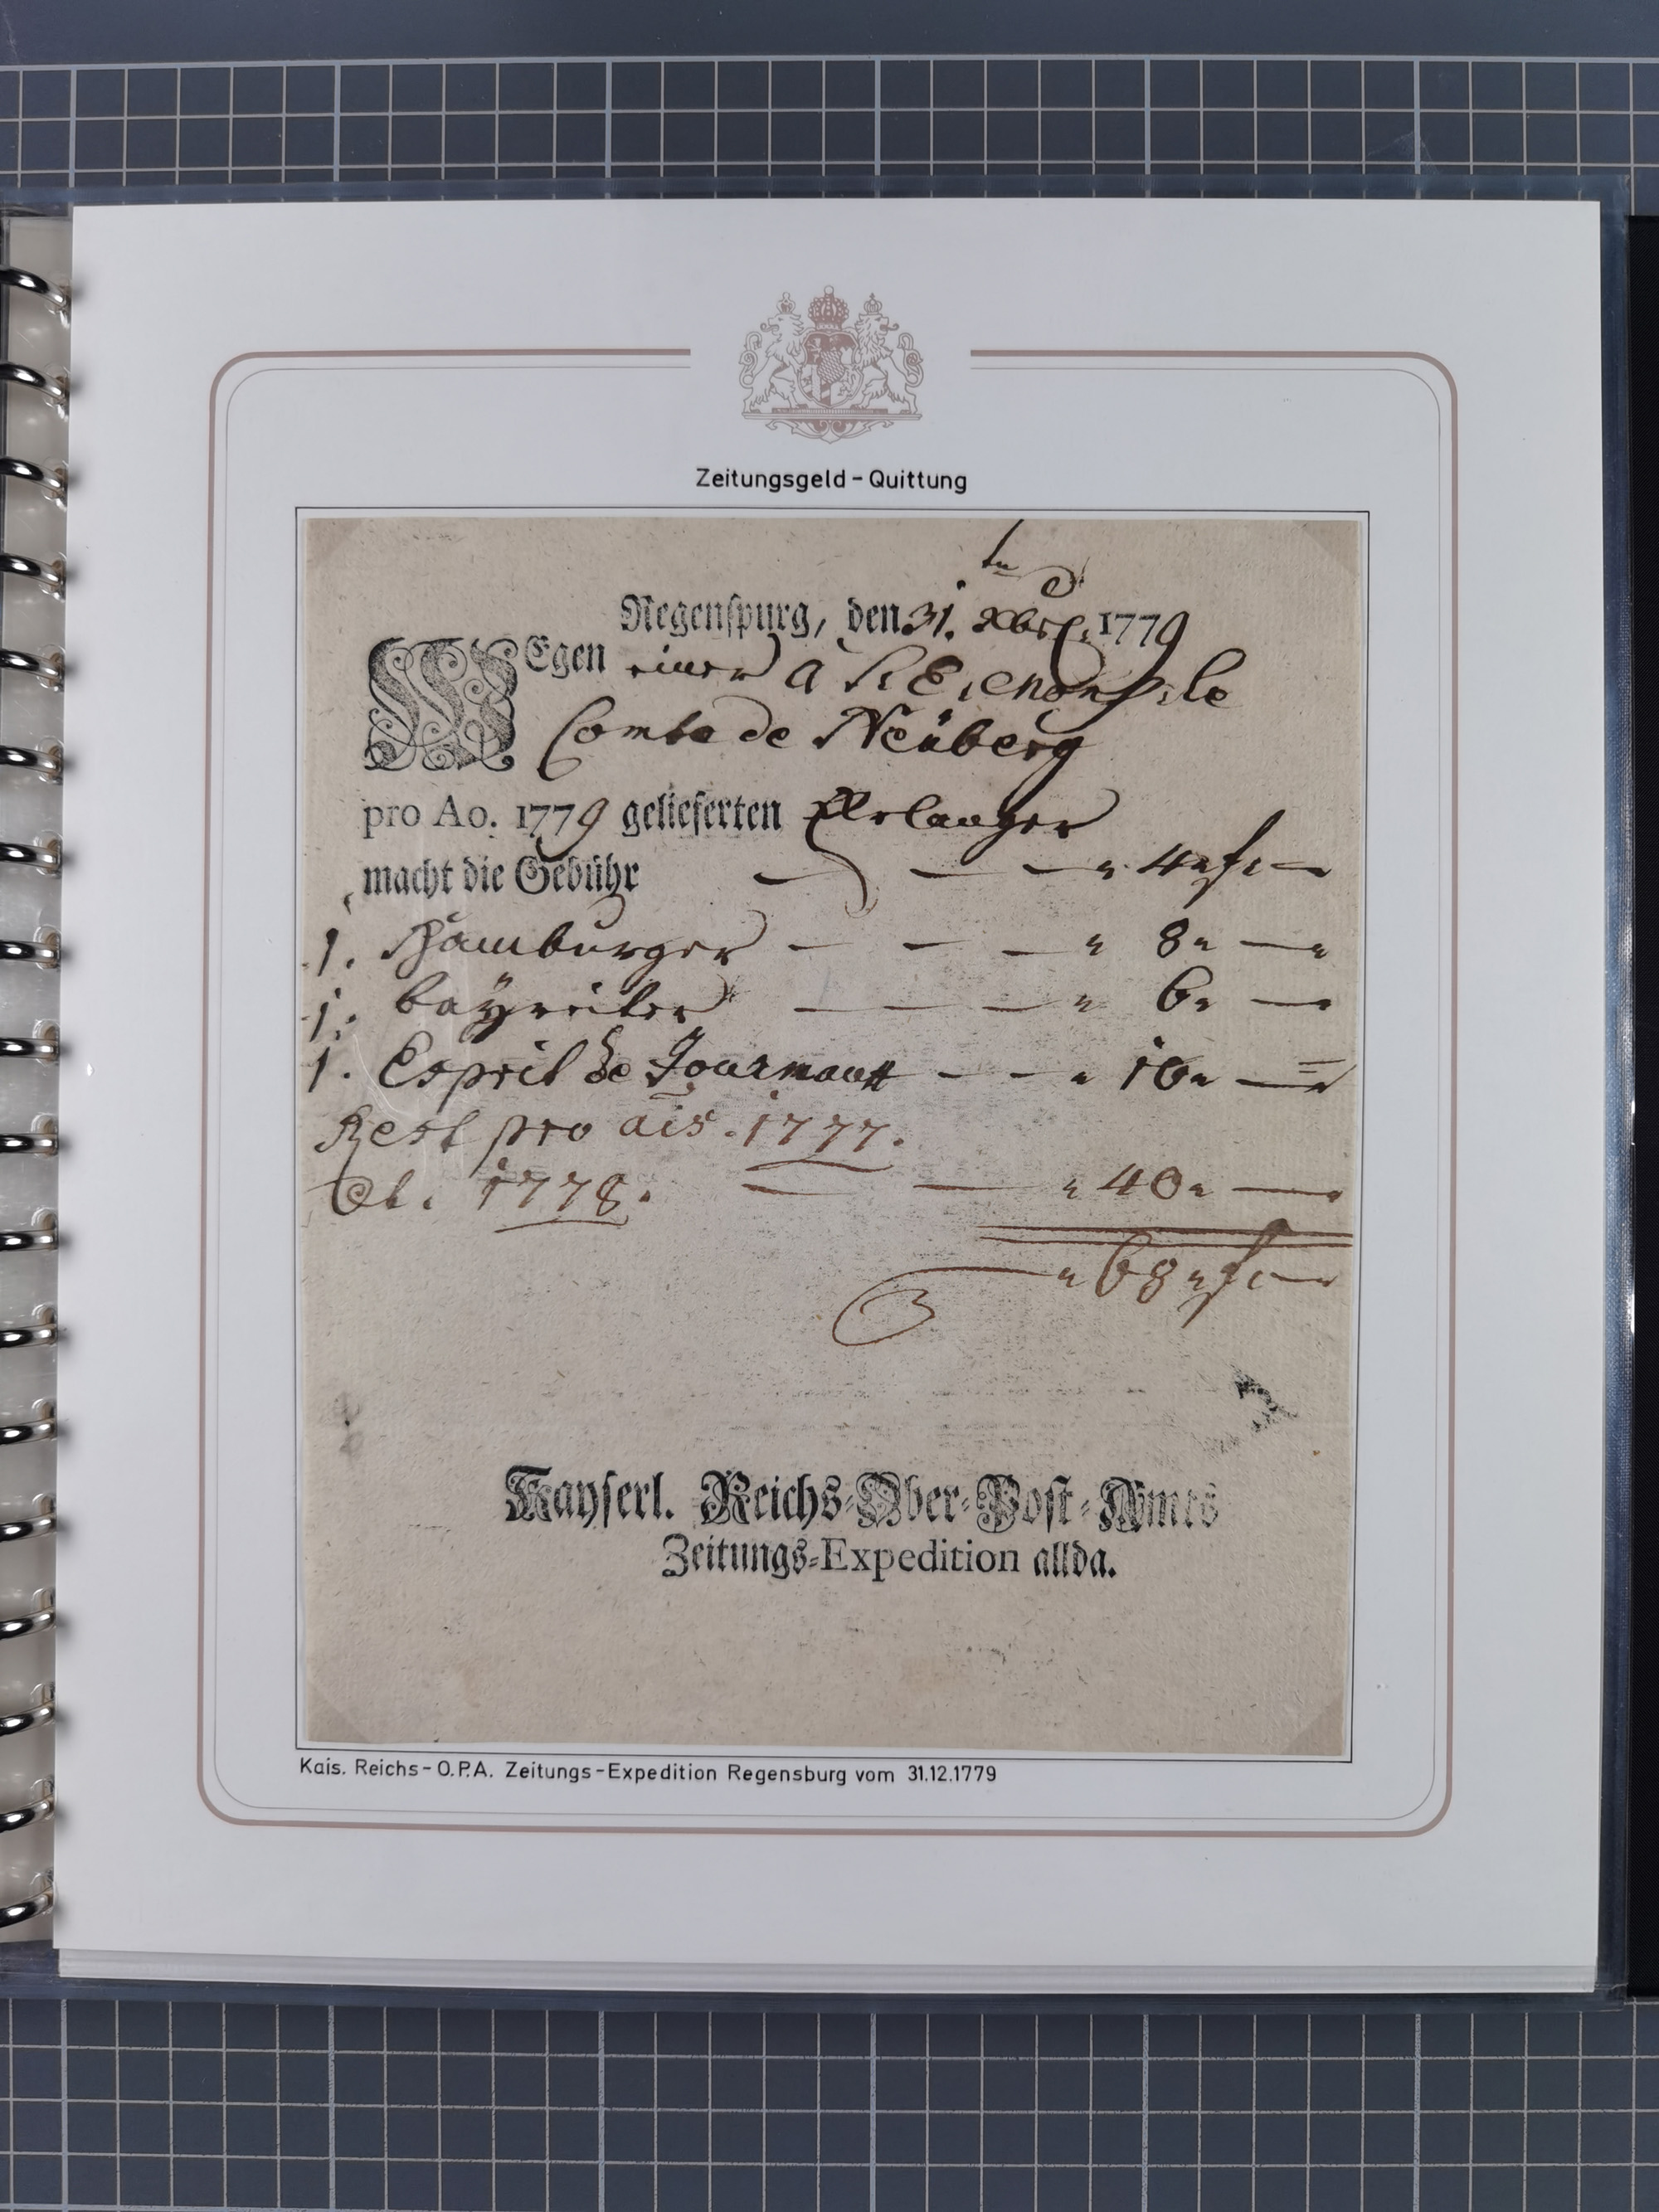 Zeitungsgeld - Quittung
Regenspurg, den 31. Xbris. 1779
WEgen einer a S. E. Monsr. le
Comte de Neüberg
pro Ao. 1779 gelieferten Erlanger
macht die Gebühr — — — " 4 " fl —
1. Hamburger — — — " 8 " —
1. bayreiter — — — " 6 " —
1. Esprit de Journaux — — " 10 " —
Rest pro ais. 1777.
et. 1778. — — " 40 " —
" 68 " fl —
Kayserl. Reichs-Ober-Post-Amts
Zeitungs-Expedition allda.
Kais. Reichs-O.P.A. Zeitungs-Expedition Regensburg vom 31.12.1779